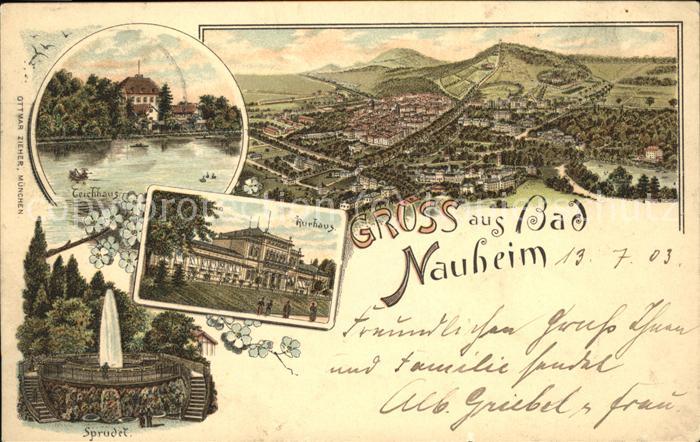 OTTMAR ZIEHER, MÜNCHEN
Teichhaus
Kurhaus.
GRUSS aus Bad
Nauheim 13. 7. 03.
Freundlichen Gruß Ihnen
und Familie sendet
Alb. Griebel u Frau.
Sprudel.